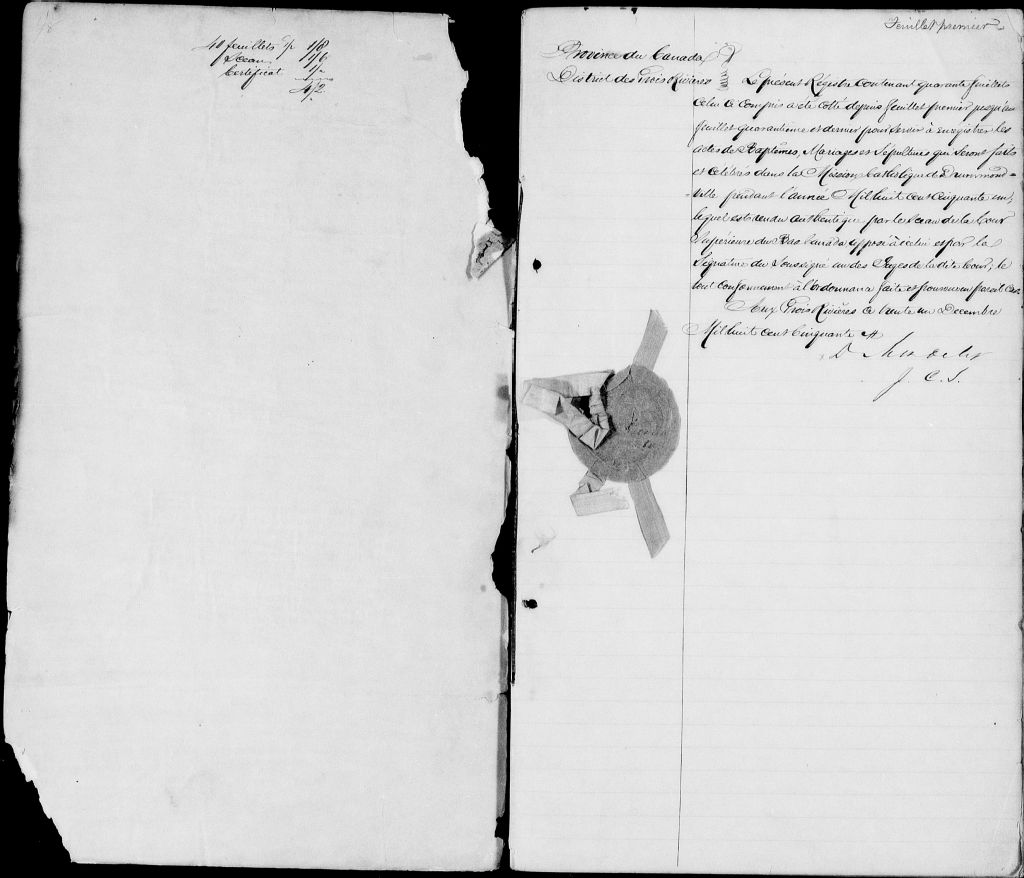 40 feuillets 1/8
Sceau 1/6
Certificat 1/-
4/2
Feuillet premier
Province du Canada
District des Trois Rivières
Le présent Régistre contenant quarante feuillets
celui ci compris a été cotté depuis feuillet premier jusqu'au
feuillet quarantième et dernier pour servir à enregistrer les
actes de Baptêmes, Mariages et Sépultures qui seront faits
et célébrés dans la Mission Catholique de Drummond-
-ville pendant l'année Mil huit cent cinquante un,
lequel est rendu authentique par le sceau de la Cour
Supérieure du Bas Canada apposé à icelui et par la
Signature du Soussigné un des Juges de la dite Cour; le
tout conformément à l'ordonnance faite et pourvue en pareil cas
Aux Trois Rivières ce trente un Decembre
Mil huit cent Cinquante
D. Mondelet
J. C. S.